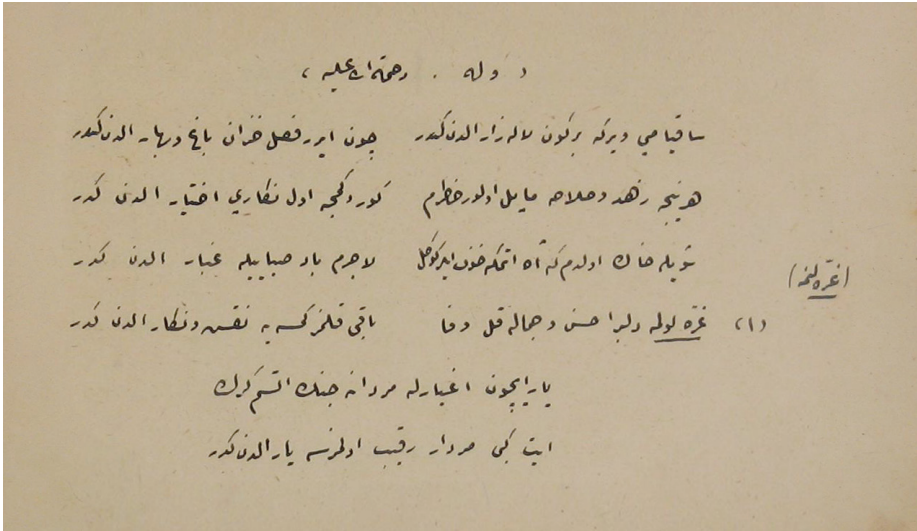 وله . رحمة الله عليه
ساقيا مي ويركه بركون لاله زار الدن كدر چون ايرر فصل خزان باغ وبهار الدن كدر
هر نيجه زهد وصلاحه مايل اولور خاطرم كوردكجه اول نكاري اختيار الدن كدر
شويله خاك اولدم كه آه اتمكه خوف ايلر كوكل لاجرم باد صباييله غبار الدن كدر
(غره لنمه)
(١) غره اولمه دلبرا حسن وجماله قل وفا باقي قلمز كمسه يه نقش ونكار الدن كدر
يار ايچون اغيارله مردانه جنك اتسم كرك
ايت كبي مردار رقيب اولمزسه يار الدن كدر